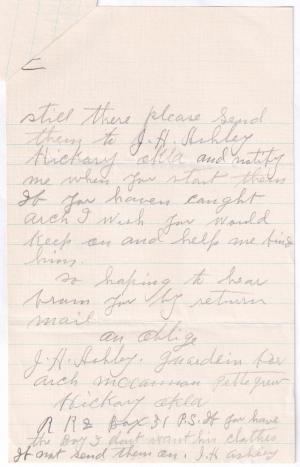 still there please send
them to J.A. Ashley
Hickary okla and notify
me when you start them
If you haven caught
arch I wish you would
keep on and help me find
him.
so hoping to hear
from you by return
mail
an oblige
J.A. Ashley. Guardein for
arch Pettegrew
Hickary okla
R R 2 Box 31 P.S. If you have
the Boy I dont want his clothes
If not send them on. J.A Ashley